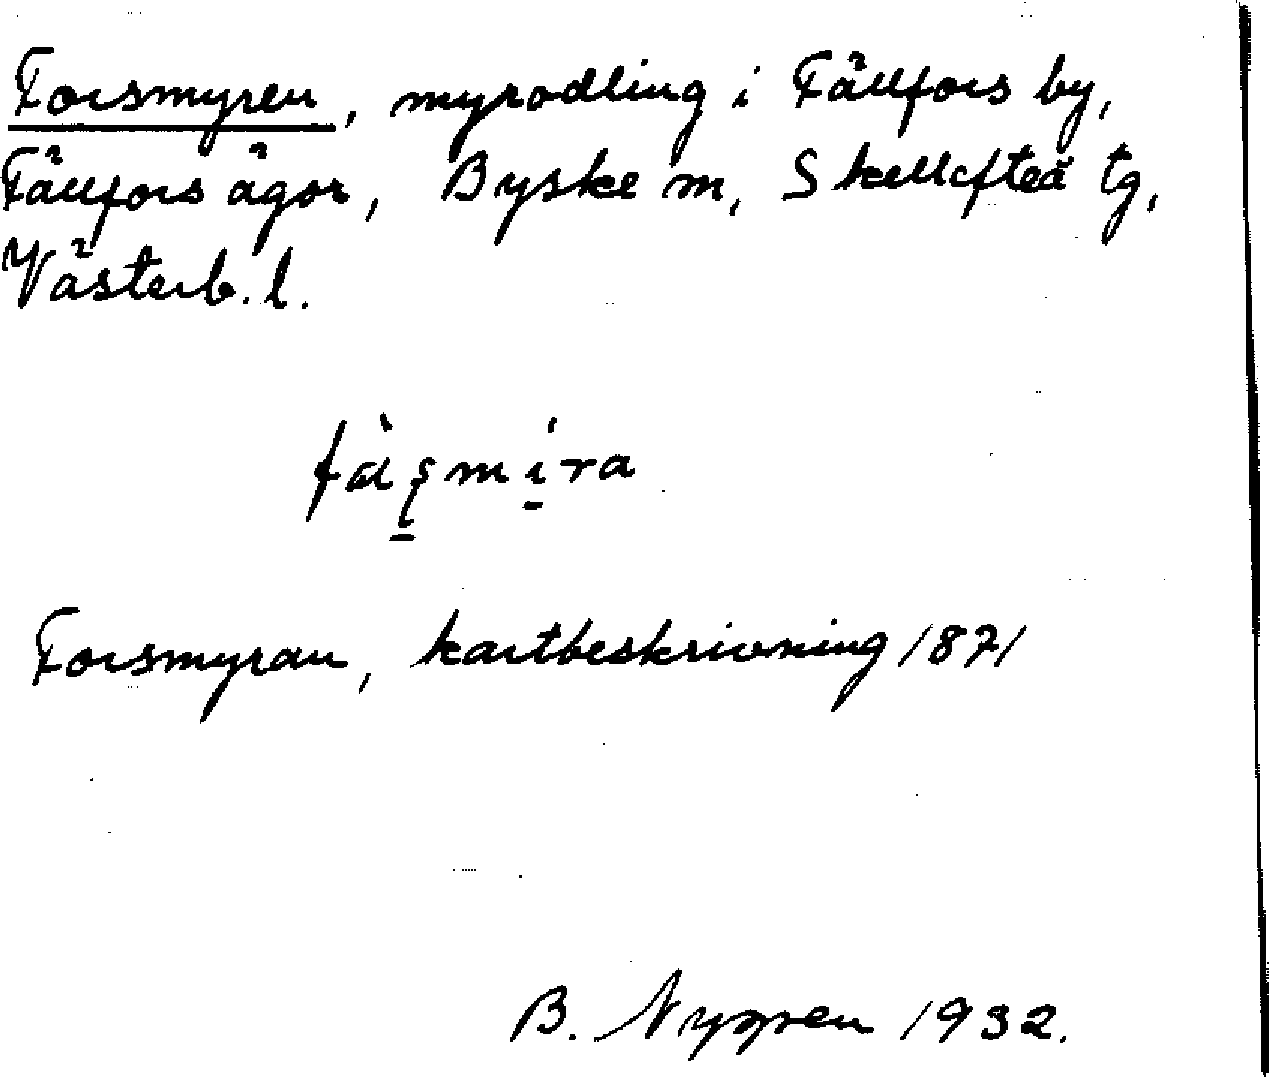 Forsmyren, myrodling i Fällfors by,
Fällfors ägor, Byske m, Skellefteå tg,
Västerb. l.
Forsmyran, kartbeskrivning 1871
B. Nygren 1932.